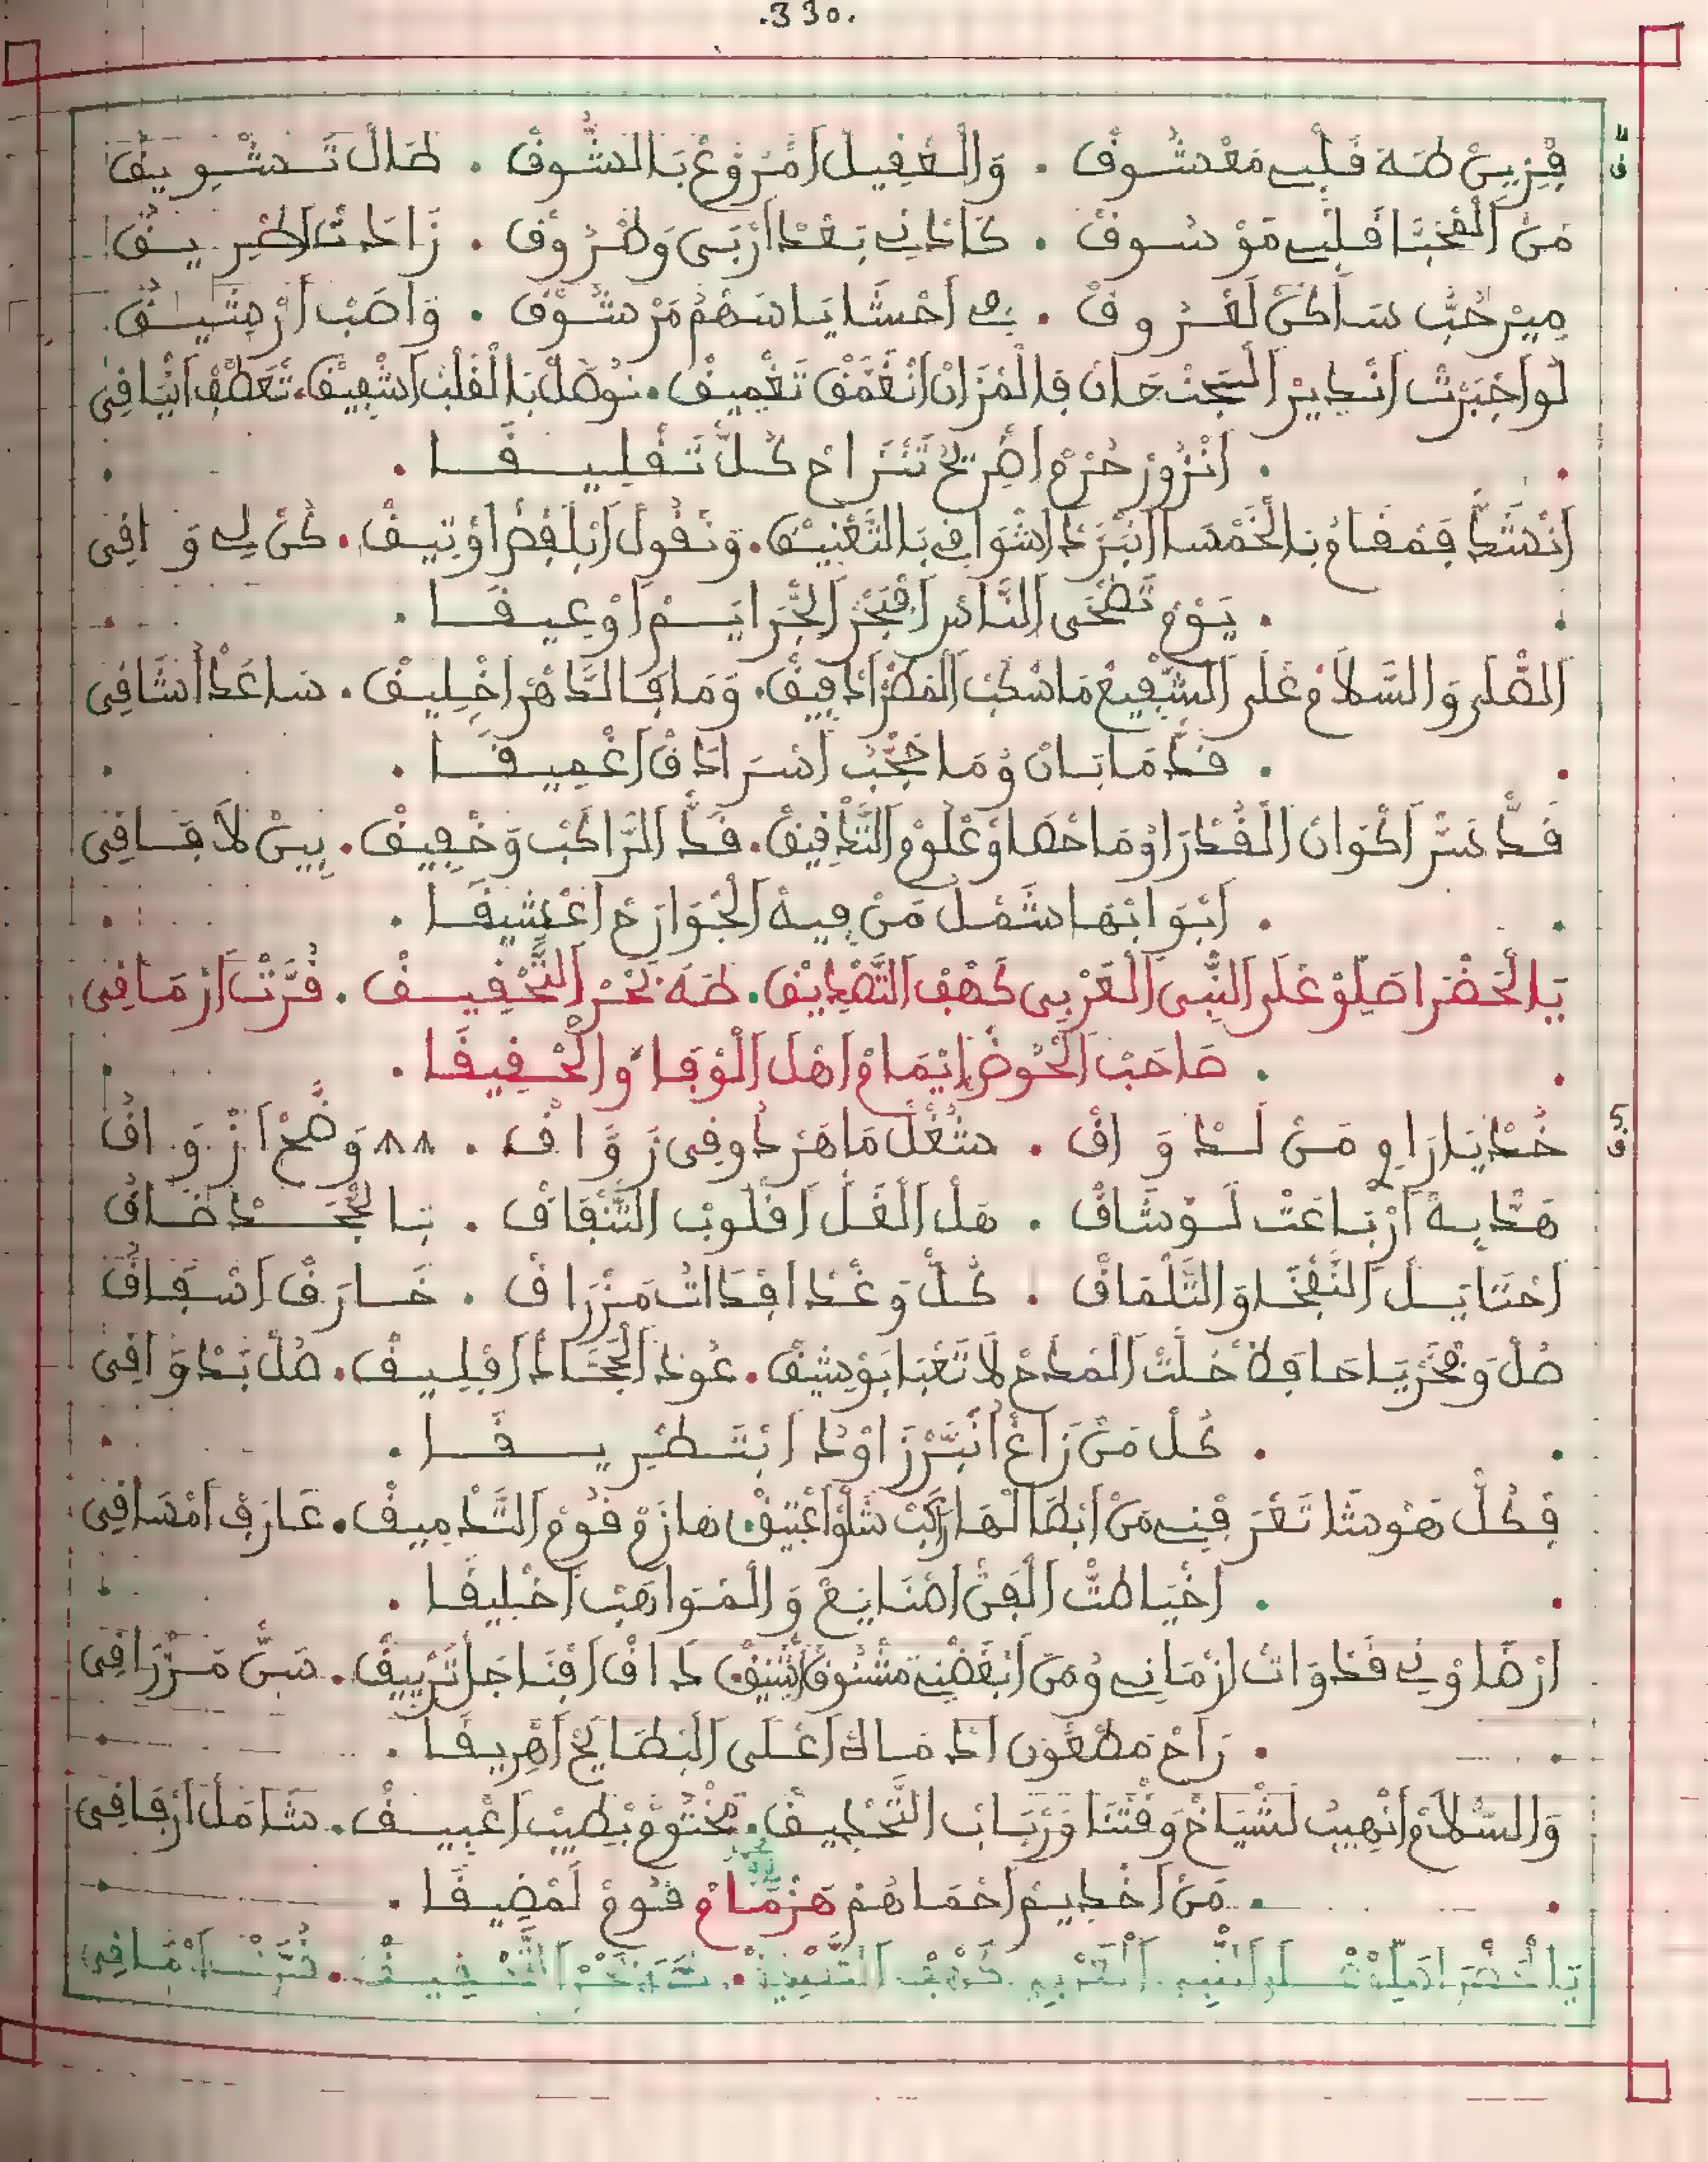 .330.
فِزِينْ طَهَ قَلْبِ مَعْشُوقْ . وَالْعْقِيلْ اَمْرَوَّعْ بَالشُّوقْ . طَالْ تَشْوِيقْ
مَنْ اَلْمْحَبَّا قَلْبِ مَوْسُوقْ . كَادْنِي بَعْدْ اَرْبَى وَطْرُوقْ . زَادَتْ اَطْرِيقْ
مِيرْ حُبُّ سَاكَنْ لَعْرُوقْ . فِي اَحْشَايَا سَهْمُ مَرْشُوقْ . وَاصَبْ اَرْشِيقْ
لَوْ اَجْبَرْتْ اَنْدِيرْ اَلسّْجَنْجَانْ فِالْمْزَانْ اَنْغَمَّقْ تَغْمِيقْ . نَوْصَلْ بَالْقَلْبْ اَشْفِيقْ . تَعْطَفْ اَنْيَافِي
. اَنْزُورْ حُرْمْ اَضْرِيحْ تَنْزَاحْ كُلّْ تَقْلِيقَا .
اَنْشَدّْ فَمْقَامُ بَالْخَمْسَا اَنْبَرَّدْ اَشْوَاقِي بَالتَّعْنِيقْ . وَنْقُولْ اَبْلَفْضْ اَوْتِيقْ . كُنْ لِي وَافِي
. يَوْمْ تَضْحَى النَّاسْ اَفْبَحْرْ الجْرَايَمْ اَوْعِيقَا .
اَلصّْلَى وَالسَّلَامْ عْلَى الشّْفِيعْ مَاسْكَبْ اَلْمْطَرْ اَدْفِيقْ . وَمَا فَالدَّهْرْ اَخْلِيقْ . سَاعَدْ اَشَافِي
. قَدّْ مَا بَانْ وُمَا حْجَبْ اَسْرَادَقْ اَعْمِيقَا .
قَدّْ سَرّْ اَكْوَانْ اَلْقُدْرَا وُمَاحْصَاوْ عْلُومْ التَّدْقِيقْ . قَدّْ الرَّاكَبْ وَحْفِيفْ . بِينْ لَاقَافِي
. اَبْوَابْهَا شْمَلْ مَنْ فِيهْ اَلْجْوَارَحْ اَعْشِيقَا .
يَالْحَضْرَا صَلِّوْ عْلَى النّْبِي الْعَرْبِي كَهْفْ التَّصْدِيقْ . طَهَ بْحَرْ التَّحْقِيقْ . قُرَّتْ اَرْمَاقِي
. صَاحَبْ اَلْحَوْضْ اِيْمَامْ اَهْلْ اَلْوْفَا وَالْحْقِيقَا .
خُدْ يَارَاوِي مَنْ لَدْوَاقْ . شُغْلْ مَاهَرْ دُوقِي زَوَّاقْ . وَضَّحْ اَزْوَاقْ
هَدِّيهْ اَرْبَاعَتْ لَوْشَاقْ . هَلْ اَلْغَلّْ اَقْلُوبْ النّْفَاقْ . بَالْجَحْدْ ضَاقْ
اَحْتَايَلْ النَّفْخَا وَالتَّلْمَاقْ . كُلّْ وَغْدْ اَفْدَاتُ مَزْرَاقْ . خَارَقْ اَشْفَاقْ
صُلْ وَفْخَرْ يَاحَافَظْ حُلَّتْ اَلْمْدَحْ لَا تَعْبَا بَوْشِيقْ . عُودْ اَلْجْحَّادْ اَفْلِيقْ . صُلْ بَدْوَاقِي
. كُلْ مَنْ زَاغْ اَنْبَرَّزْ اَوْدَا اَبْتَطْرِيقَا .
فِكُلّْ هَوْشَا تَعْرَفْنِي مَنْ اَبْطَالْهَا رَاكَبْ شَلْوْ اَعْتِيقْ . هَازَمْ قَوْمْ التَّدْمِيقْ . عَارَفْ اَمْسَاقِي
. اَخْيَاطَتْ اَلْفَنْ اَصْنَايَعْ وَالْمْوَاهَبْ اَخْلِيقَا .
اَرْضَاوْنِي قَدْوَاتْ اَزْمَانِي وُمَنْ اَبْغَضْنِي مَشْنُوقْ اَشْنِيقْ . دَاقْ اَفْنَاجَلْ تَرْيِيقْ . سَنّْ مَزْرَاقِي
. رَاحْ مَطْعُونْ اَدْمَاهْ اَعْلَى اَلْبْطَايَحْ اَهْرِيقَا .
وَالسّْلَامْ اَنْهِيبُ لَشْيَاخْ وَقْتْنَا وَرْبَابْ التَّحْدِيقْ . مَخْتُومْ بْطِيبْ اَعْبِيقْ . شَامَلْ اَرْفَاقِي
. مَنْ اَخْدِيمْ اَحْمَاهُمْ هَزَّامْ قَوْمْ لَمْضِيقَا .
يَالْحَضْرَا صَلِّوْ عْلَى النّْبِي الْعَرْبِي كَهْفْ التَّصْدِيقْ . طَهَ بْحَرْ التَّحْقِيقْ . قُرَّتْ اَرْمَاقِي